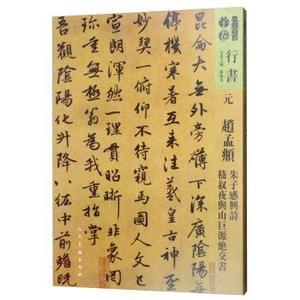 行書
元
趙孟頫
朱子感興詩
嵇叔夜與山巨源絶交書
崑崙大無外旁礴下深廣陰陽無
停機寒暑互来往羲皇古神聖
妙契一俯仰不待窺馬圖人文已
宣朗渾然一理貫昭晰非象罔
珍重無極翁為我重指掌
吾觀陰陽化升降八紘中前瞻既
人民美術出版社